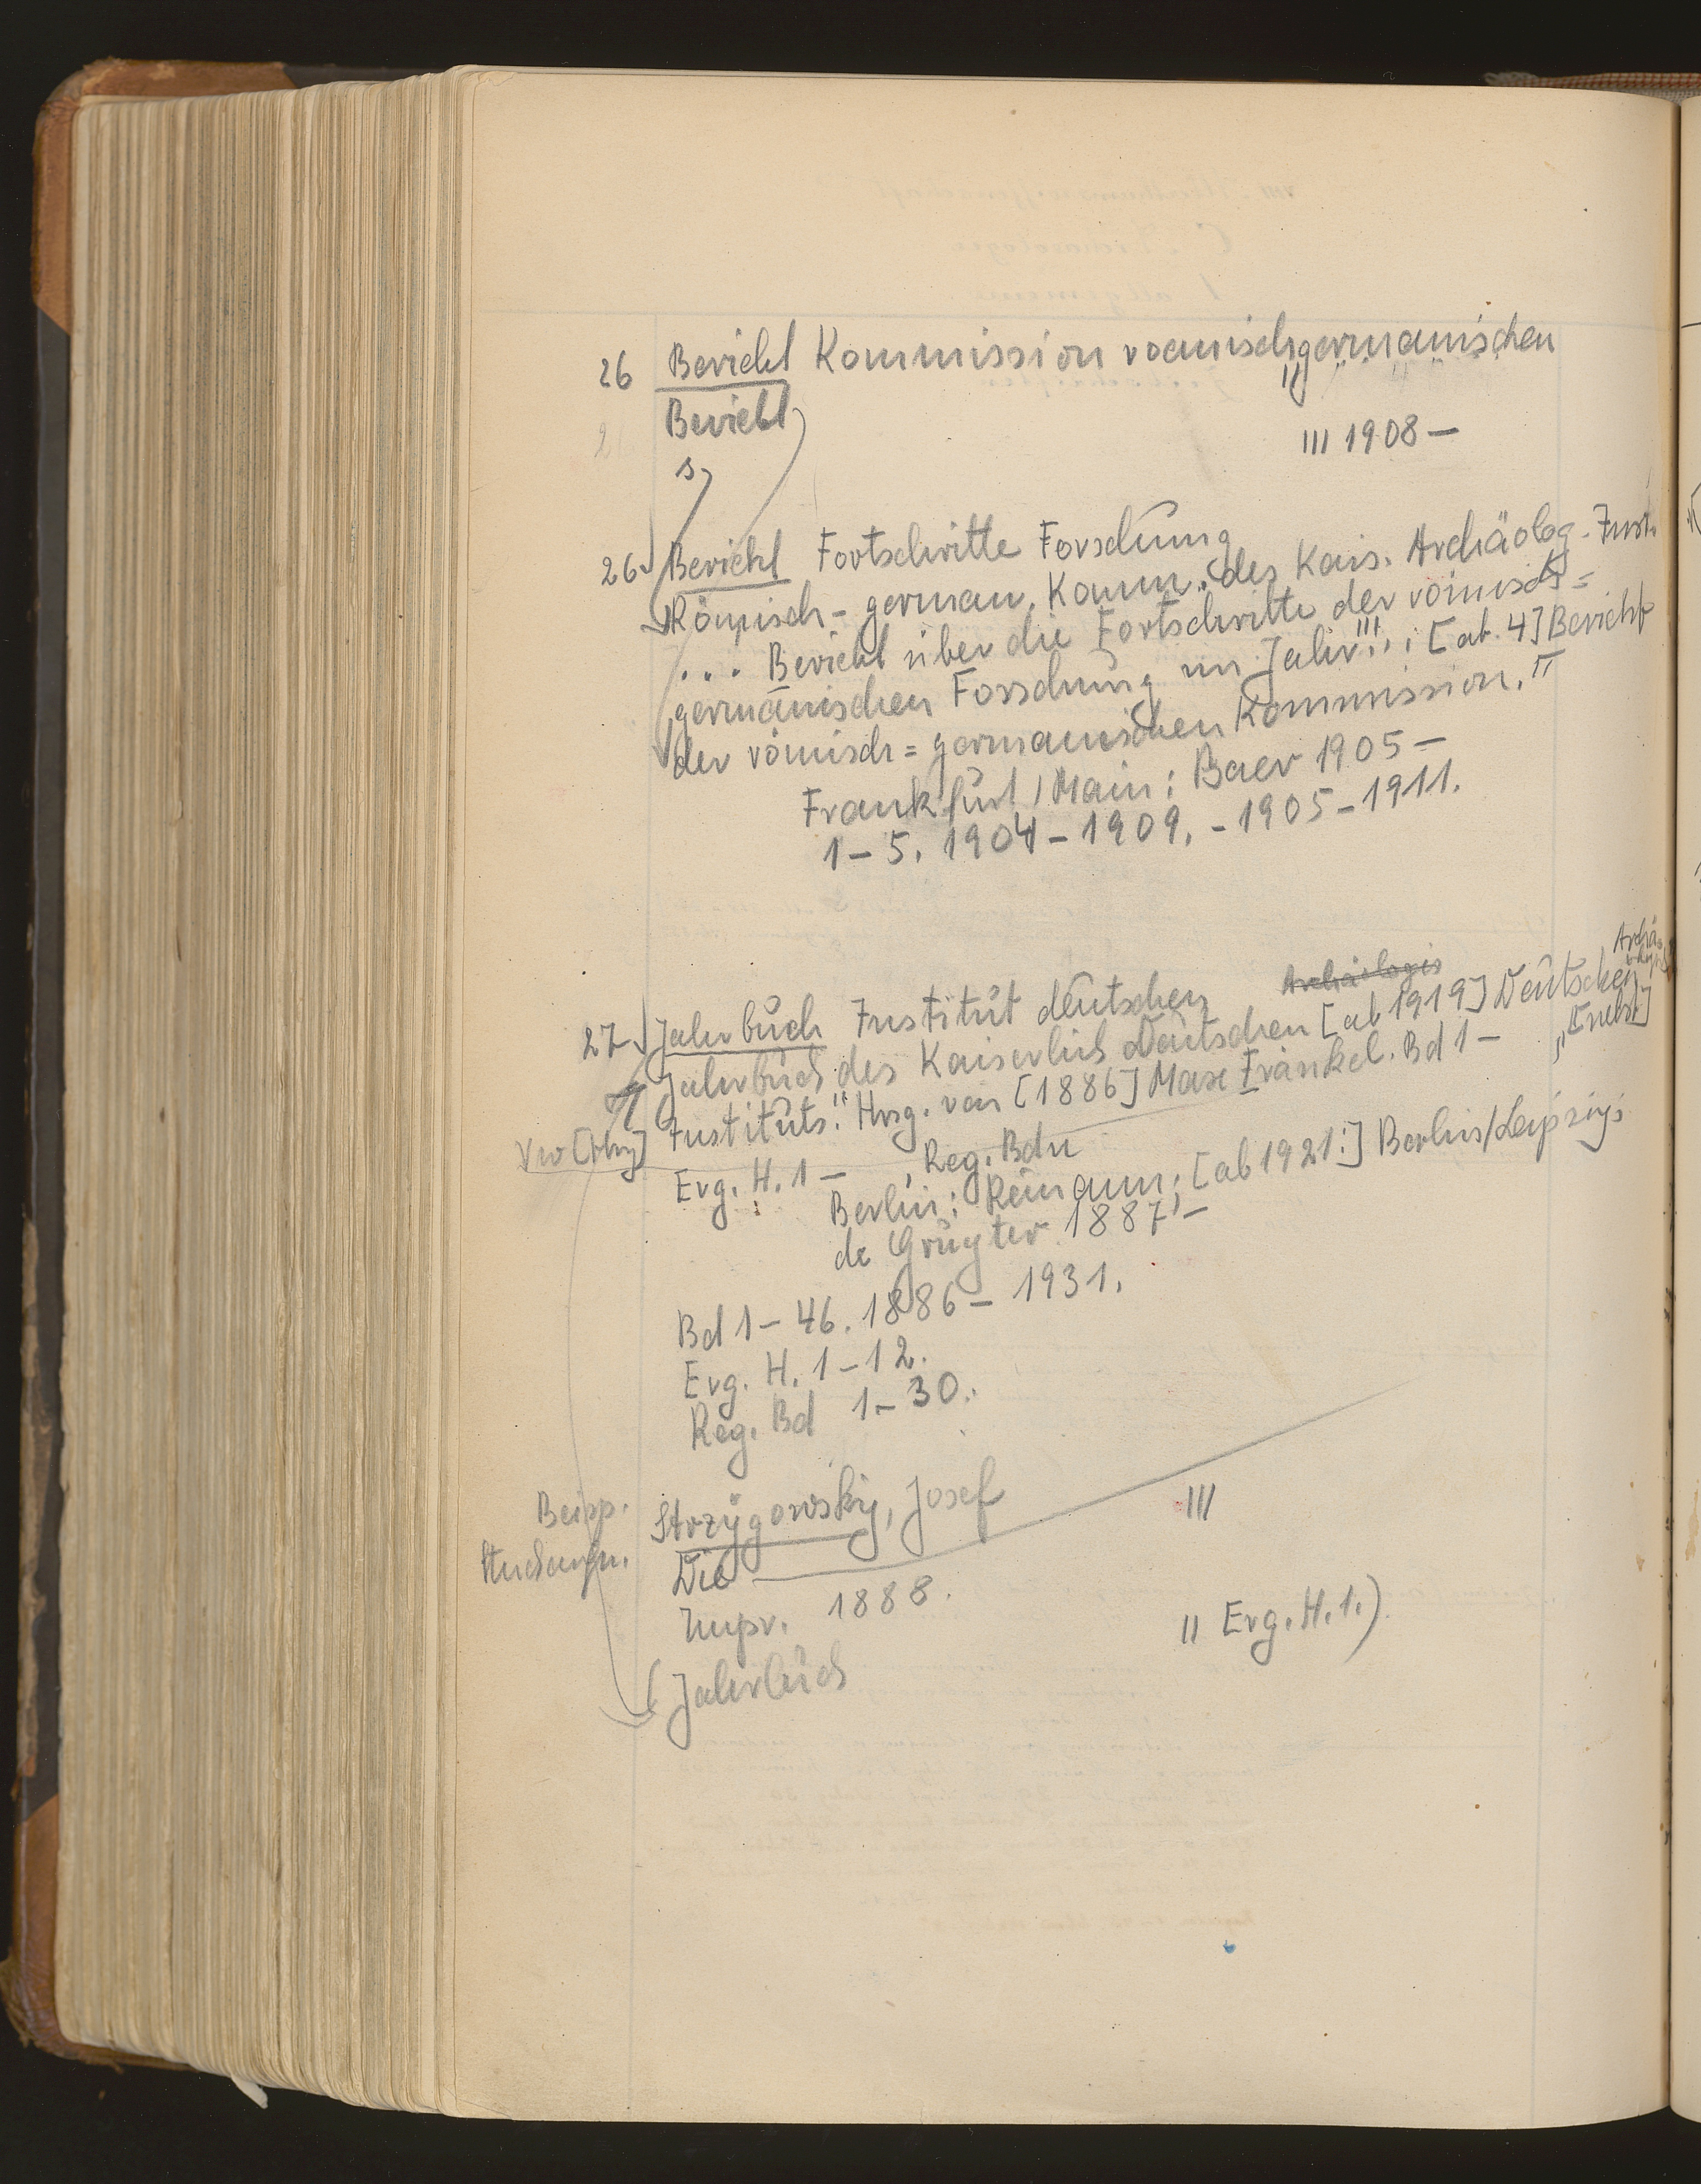 26 Bericht Kommission roemischgermanischen
Bericht "
III 1908 –
s
26 Bericht Fortschritte Forschung
Römisch-german. Komm. des Kais. Archäolog. Inst.
... Bericht über die Fortschritte der römisch=
germanischen Forschung im Jahr ... ; [ab. 4] Bericht
der römisch=germanischen Kommission. II
Frankfurt/Main: Baer 1905 –
1 – 5. 1904 – 1909. – 1905 – 1911.
27 Jahrbuch Institut deutschen
Jahrbuch des Kaiserlich Deutschen [ab 1919] Deutschen
Instituts. Hrsg. von [1886] Max Fränkel. Bd 1 – " [nebst]
Erg. H. 1 – , Reg. Bdn
Berlin: Reimann; [ab 1921:] Berlin/Leipzig:
de Gruyter 1887 –
Bd 1 – 46. 1886 – 1931.
Erg. H. 1 – 12.
Reg. Bd 1 – 30.
Strzygowsky, Josef III
Die
Impr. 1888.
II Erg. H. 1.)
(Jahrbuch